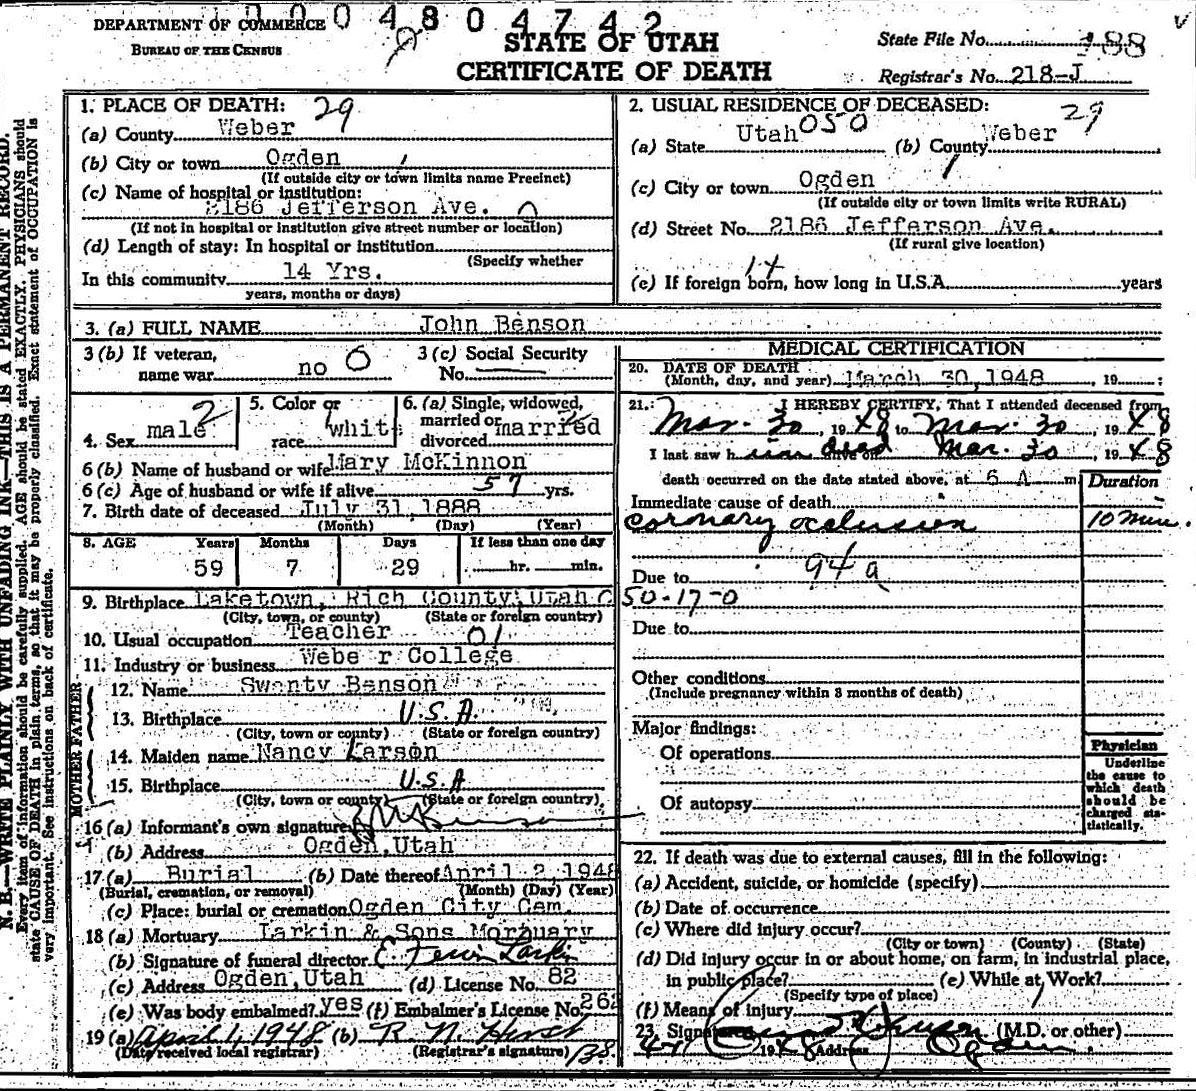 DEPARTMENT OF COMMERCE
BUREAU OF THE CENSUS
0004804742
STATE OF UTAH
CERTIFICATE OF DEATH
State File No. 188
Registrar's No. 218-J
N. B.—WRITE PLAINLY WITH UNFADING INK—THIS IS A PERMANENT RECORD.
Every item of information should be carefully supplied. AGE should be stated EXACTLY. PHYSICIANS should
state CAUSE OF DEATH in plain terms, so that it may be properly classified. Exact statement of OCCUPATION is
very important. See instructions on back of certificate.
1. PLACE OF DEATH: 29
(a) County Weber
(b) City or town Ogden
(If outside city or town limits name Precinct)
(c) Name of hospital or institution:
2186 Jefferson Ave. 0
(If not in hospital or institution give street number or location)
(d) Length of stay: In hospital or institution
(Specify whether
In this community 14 Yrs.
years, months or days)
2. USUAL RESIDENCE OF DECEASED:
(a) State Utah 050 (b) County Weber 29
(c) City or town Ogden
(If outside city or town limits write RURAL)
(d) Street No. 2186 Jefferson Ave.
(If rural give location)
14
(e) If foreign born, how long in U.S.A. years
3. (a) FULL NAME John Benson
3 (b) If veteran,
name war no 0
3 (c) Social Security
No.
4. Sex male 2
5. Color or
race white
6. (a) Single, widowed,
married or
divorced married
6 (b) Name of husband or wife Mary McKinnon
6 (c) Age of husband or wife if alive 57 yrs.
7. Birth date of deceased July 31, 1888
(Month) (Day) (Year)
8. AGE Years Months Days If less than one day
59 7 29 hr. min.
9. Birthplace Laketown, Rich County, Utah
(City, town, or county) (State or foreign country)
10. Usual occupation Teacher 01
11. Industry or business Webe r College
MOTHER FATHER
12. Name Swanty Benson
13. Birthplace U.S.A.
(City, town or county) (State or foreign country)
14. Maiden name Nancy Larson
15. Birthplace U.S.A
(City, town or county) (State or foreign country)
16 (a) Informant's own signature
(b) Address Ogden, Utah
17 (a) Burial (b) Date thereof April 2, 1948
(Burial, cremation, or removal) (Month) (Day) (Year)
(c) Place: burial or cremation Ogden City Cem.
18 (a) Mortuary Larkin & Sons Mortuary
(b) Signature of funeral director Larkin
(c) Address Ogden, Utah (d) License No. 82
(e) Was body embalmed? yes (f) Embalmer's License No. 262
19 (a) April 1, 1948 (b) R. N. Hirst
(Date received local registrar) (Registrar's signature)
MEDICAL CERTIFICATION
20. DATE OF DEATH
(Month, day, and year) March 30, 1948, 19 :
21. I HEREBY CERTIFY, That I attended deceased from
Mar. 30, 1948 to Mar. 30, 1948
I last saw him dead Mar. 30, 1948
death occurred on the date stated above, at 6 A m
Duration
Immediate cause of death
coronary occlusion 10 min.
94a
Due to
50-17-0
Due to
Other conditions
(Include pregnancy within 3 months of death)
Major findings:
Of operations
Of autopsy
Physician
Underline
the cause to
which death
should be
charged sta-
tistically.
22. If death was due to external causes, fill in the following:
(a) Accident, suicide, or homicide (specify)
(b) Date of occurrence
(c) Where did injury occur?
(City or town) (County) (State)
(d) Did injury occur in or about home, on farm, in industrial place,
in public place? (e) While at Work?
(Specify type of place)
(f) Means of injury
23. Signature (M.D. or other)
1948 Address Ogden